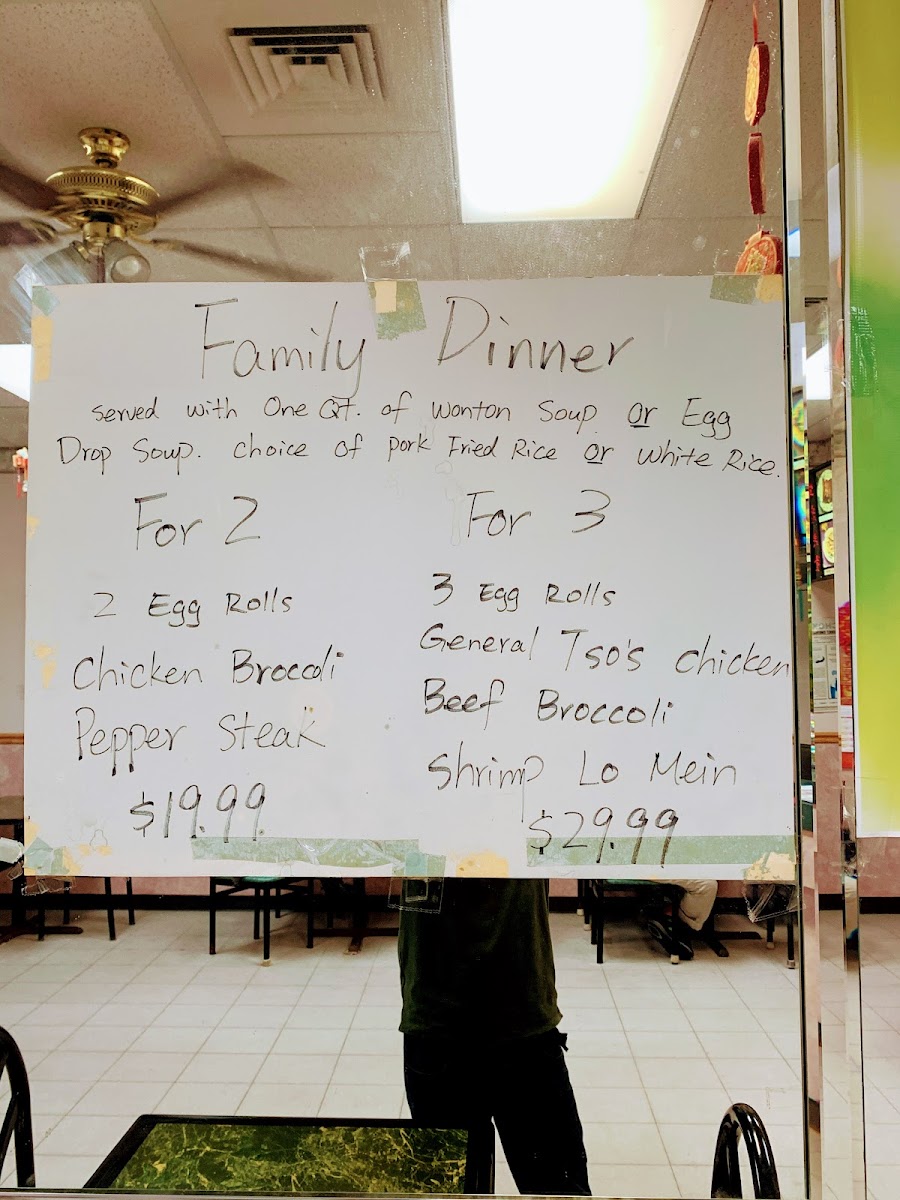 Family Dinner
Served with One QT. of Wonton Soup or Egg
Drop Soup. Choice of Pork Fried Rice or White Rice.
For 2
2 Egg Rolls
Chicken Broccoli
Pepper Steak
$19.99
For 3
3 Egg Rolls
General Tso's chicken
Beef Broccoli
Shrimp Lo Mein
$29.99